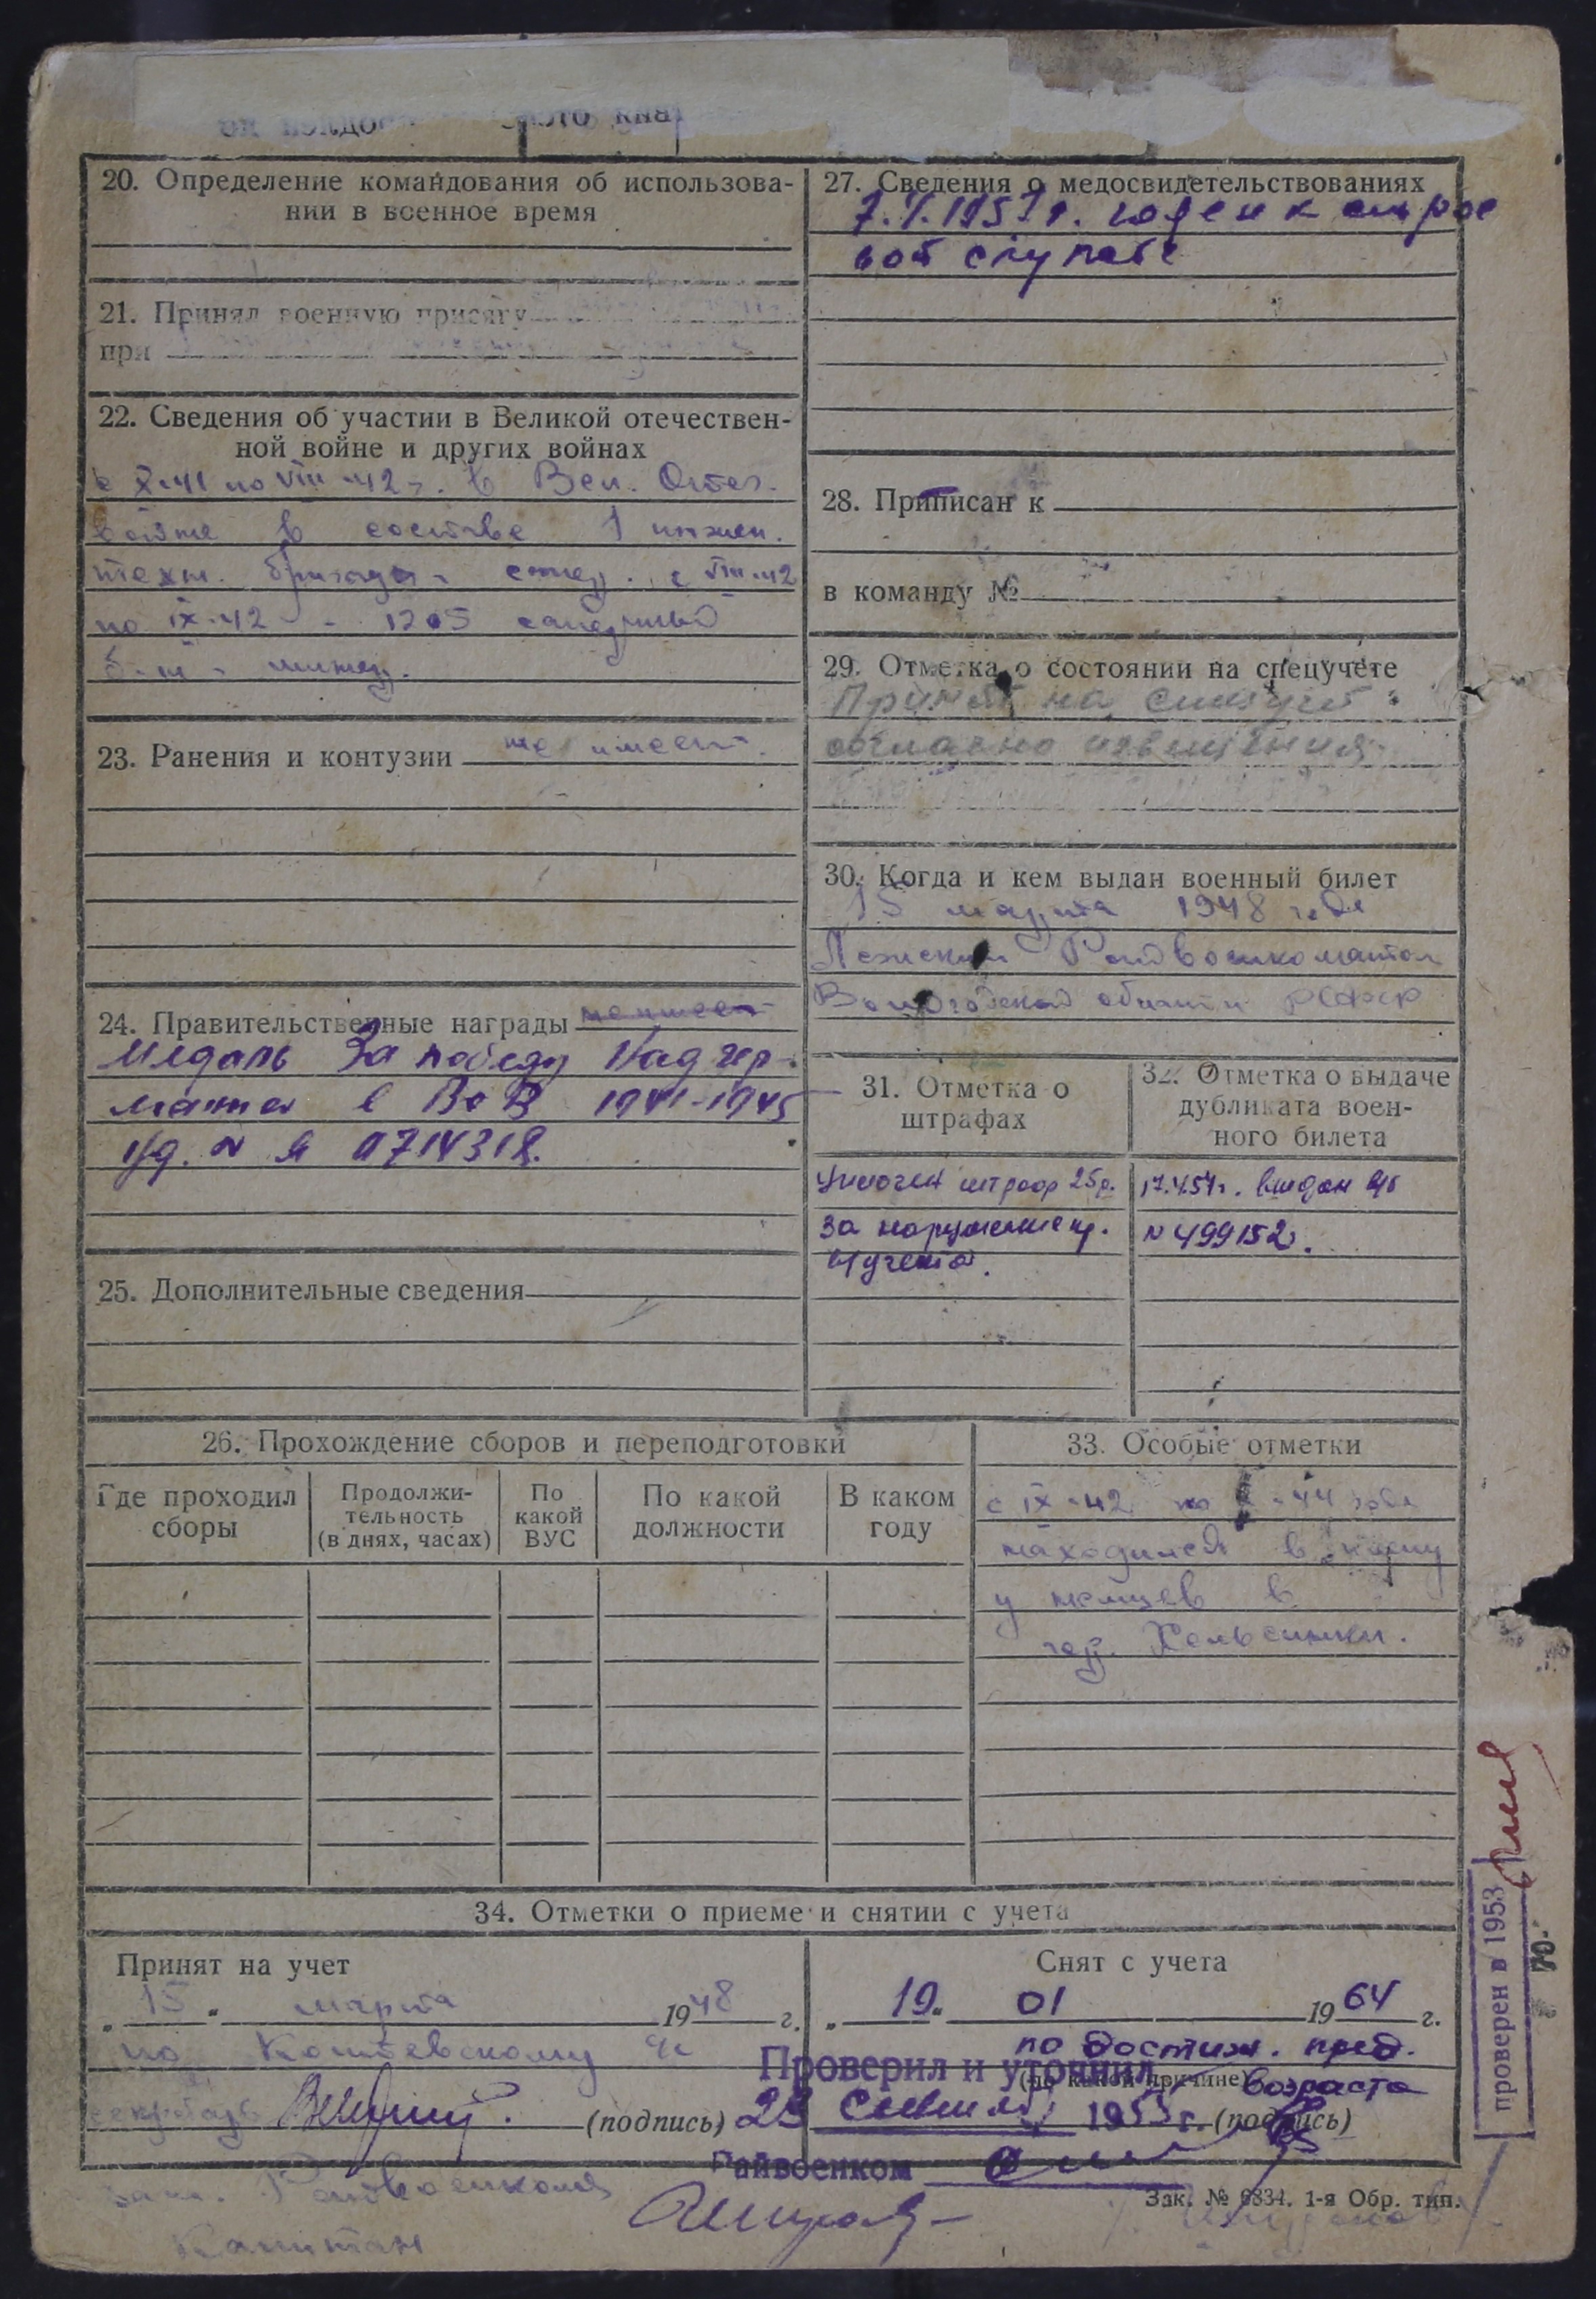 20. Определение командования об использова-
нии в военное время
21. Принял военную присягу
при
22. Сведения об участии в Великой отечествен-
ной войне и других войнах
с X-41 по VIII-42 г. в Вел. Отеч.
войне в составе 1 инжен.
техн. бригады - с VIII-42
по IX-42 - 1205 саперный
б-н -
23. Ранения и контузии не имеет.
24. Правительственные награды не имеет
Медаль За победу над гер-
в ВОВ 1941-1945
Уд. № Я 0714318.
25. Дополнительные сведения
27. Сведения о медосвидетельствованиях
годен к строе
вой службе
28. Приписан к
в команду №
29. Отметка о состоянии на спецучете
Принят на спецучет
согласно извещения
30. Когда и кем выдан военный билет
15 марта 1948 года
Райвоенкоматом
Вологодской области РСФСР
31. Отметка о
штрафах
штраф 25р.
за нарушение пр.
в/учета.
32. Отметка о выдаче
дубликата воен-
ного билета
выдан в/б
№ 499152.
26. Прохождение сборов и переподготовки
Где проходил
сборы
Продолжи-
тельность
(в днях, часах)
По
какой
ВУС
По какой
должности
В каком
году
33. Особые отметки
с IX-42 по X-44 года
находился в плену
у немцев в
гор. Хельсинки.
34. Отметки о приеме и снятии с учета
Принят на учет
„ 15 " марта 1948 г.
по
(подпись)
Райвоенкома
Капитан
Снят с учета
„ 19 " 01 1964 г.
по достиж. пред.
(по какой причине) возраста
(подпись)
Проверил и уточнил
1953 г.
Райвоенком
Зак. № 6834. 1-я Обр. тип.
проверен в 1953